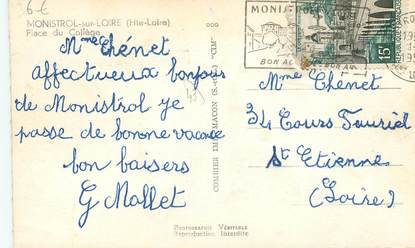 6€
MONISTROL-sur-LOIRE (Hte-Loire)
Place du Collège
Mme Chénet
affectueux bonjour
de Monistrol je
passe de bonne vacance
bon baisers
G Mallet
COMBIER IMP. MACON (S.-&-L.) "CIM"
MONIST
BON AC
15
Mme Chénet
34 Cours Fauriel
St Etienne
(Loire)
PHOTOGRAPHIE VÉRITABLE
Reproduction Interdite